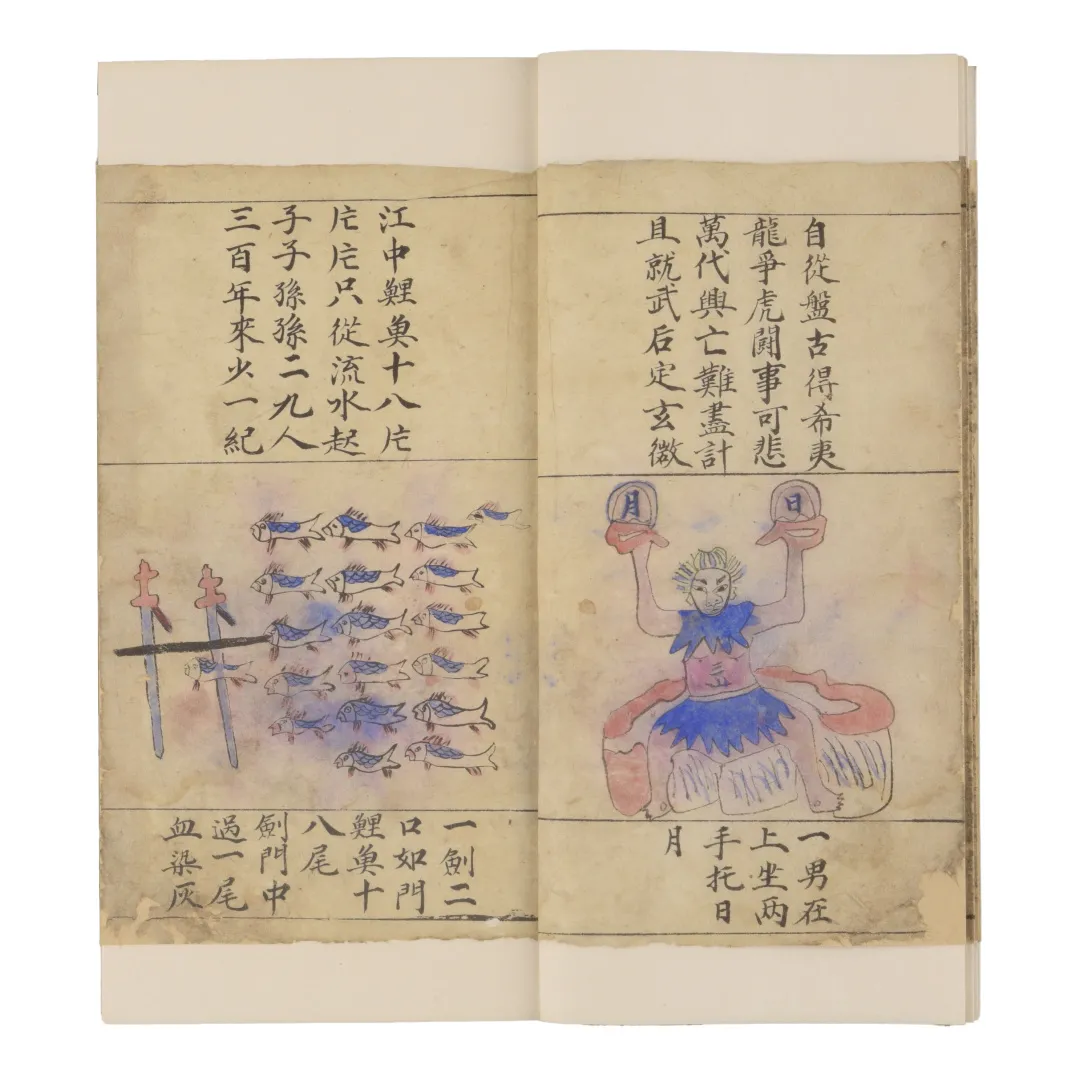 自從盤古得希夷
龍爭虎鬪事可悲
萬代興亡難盡計
且就武后定玄微
日
月
一男在
上坐两
手托日
月
江中鯉魚十八片
片片只從流水起
子子孫孫二九人
三百年來少一紀
一劍二
口如門
鯉魚十
八尾
劍門中
過一尾
血染灰